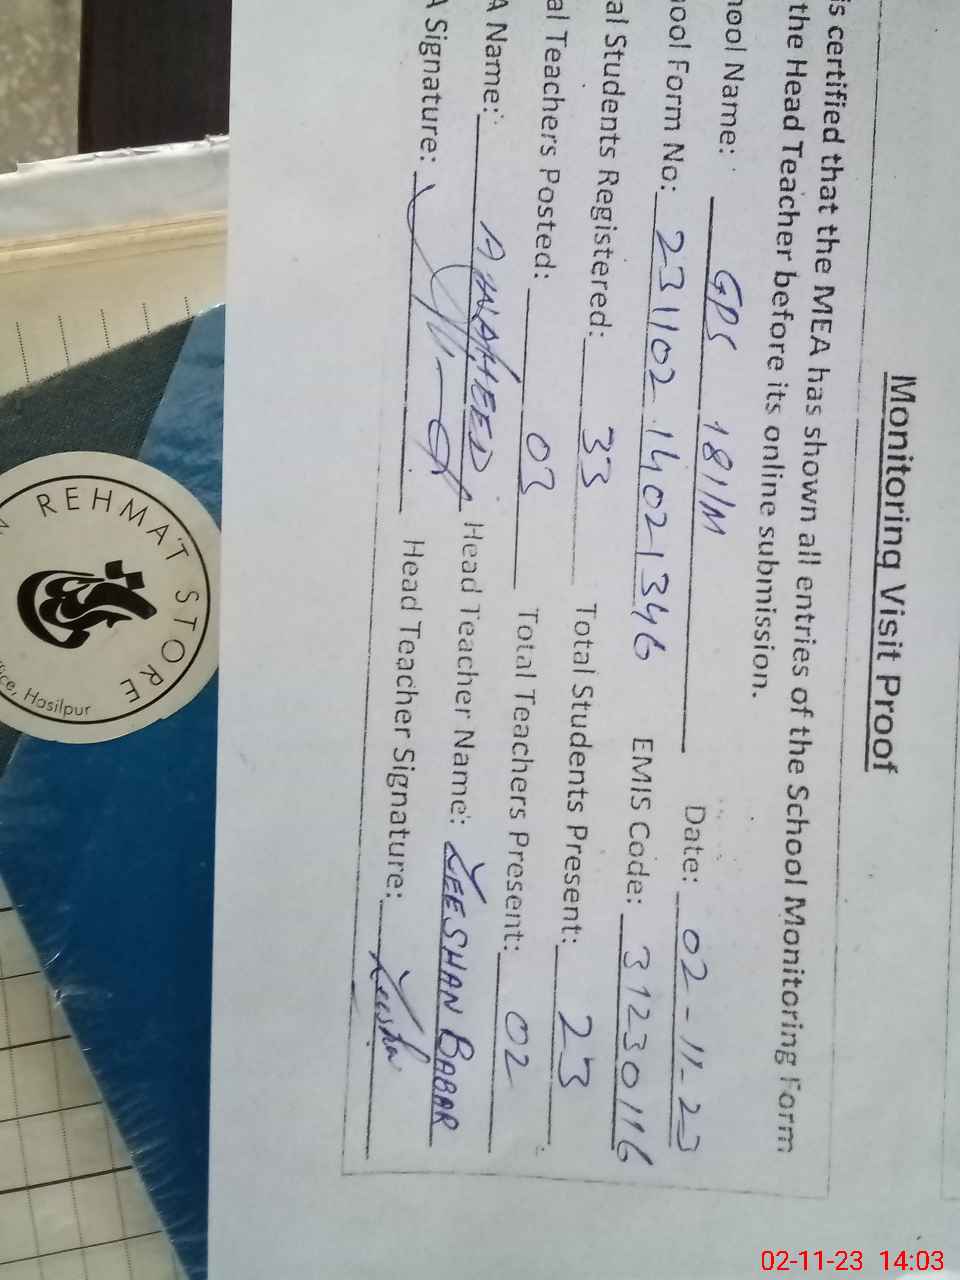 Monitoring Visit Proof
is certified that the MEA has shown all entries of the School Monitoring Form
the Head Teacher before its online submission.
hool Name: GPS 181/M Date: 02-11-23
ool Form No: 231102 14021346 EMIS Code: 31230116
al Students Registered: 33 Total Students Present: 23
al Teachers Posted: 03 Total Teachers Present: 02
A Name: Head Teacher Name: ZEESHAN BABAR
A Signature: Head Teacher Signature: Zeesha
REHMAT STORE
ice, Hasilpur
02-11-23 14:03